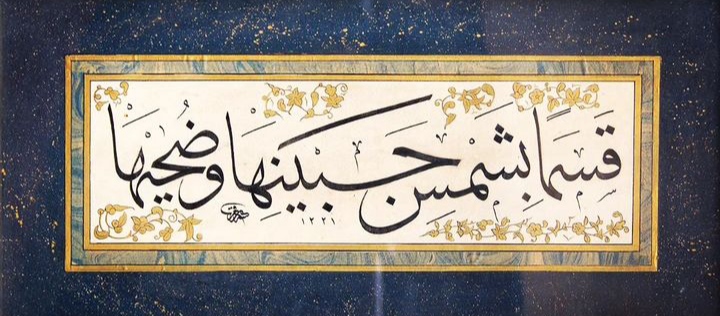 قَسَمًا بِشَمْسِ جَبِينِهَا وَضُحَيهَا